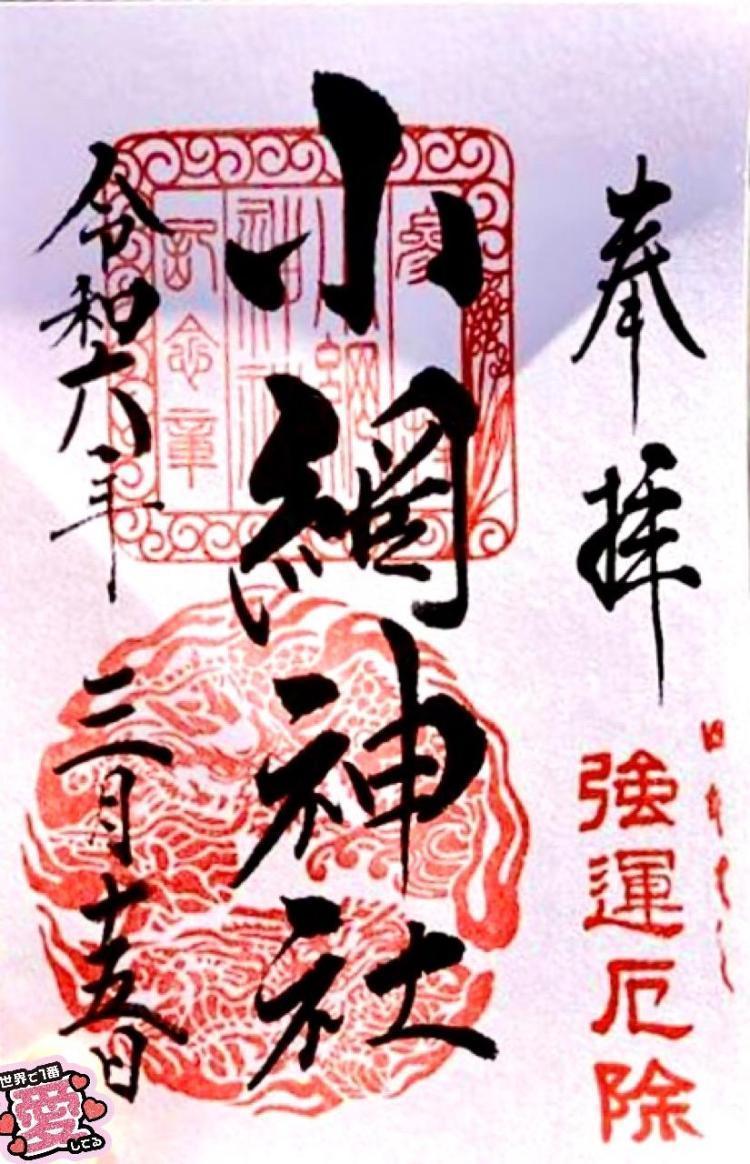 奉拝
強運厄除
参拝
小網
神社
記念章
小網神社
令和六年
三月十五日
世界で1番
愛
してる